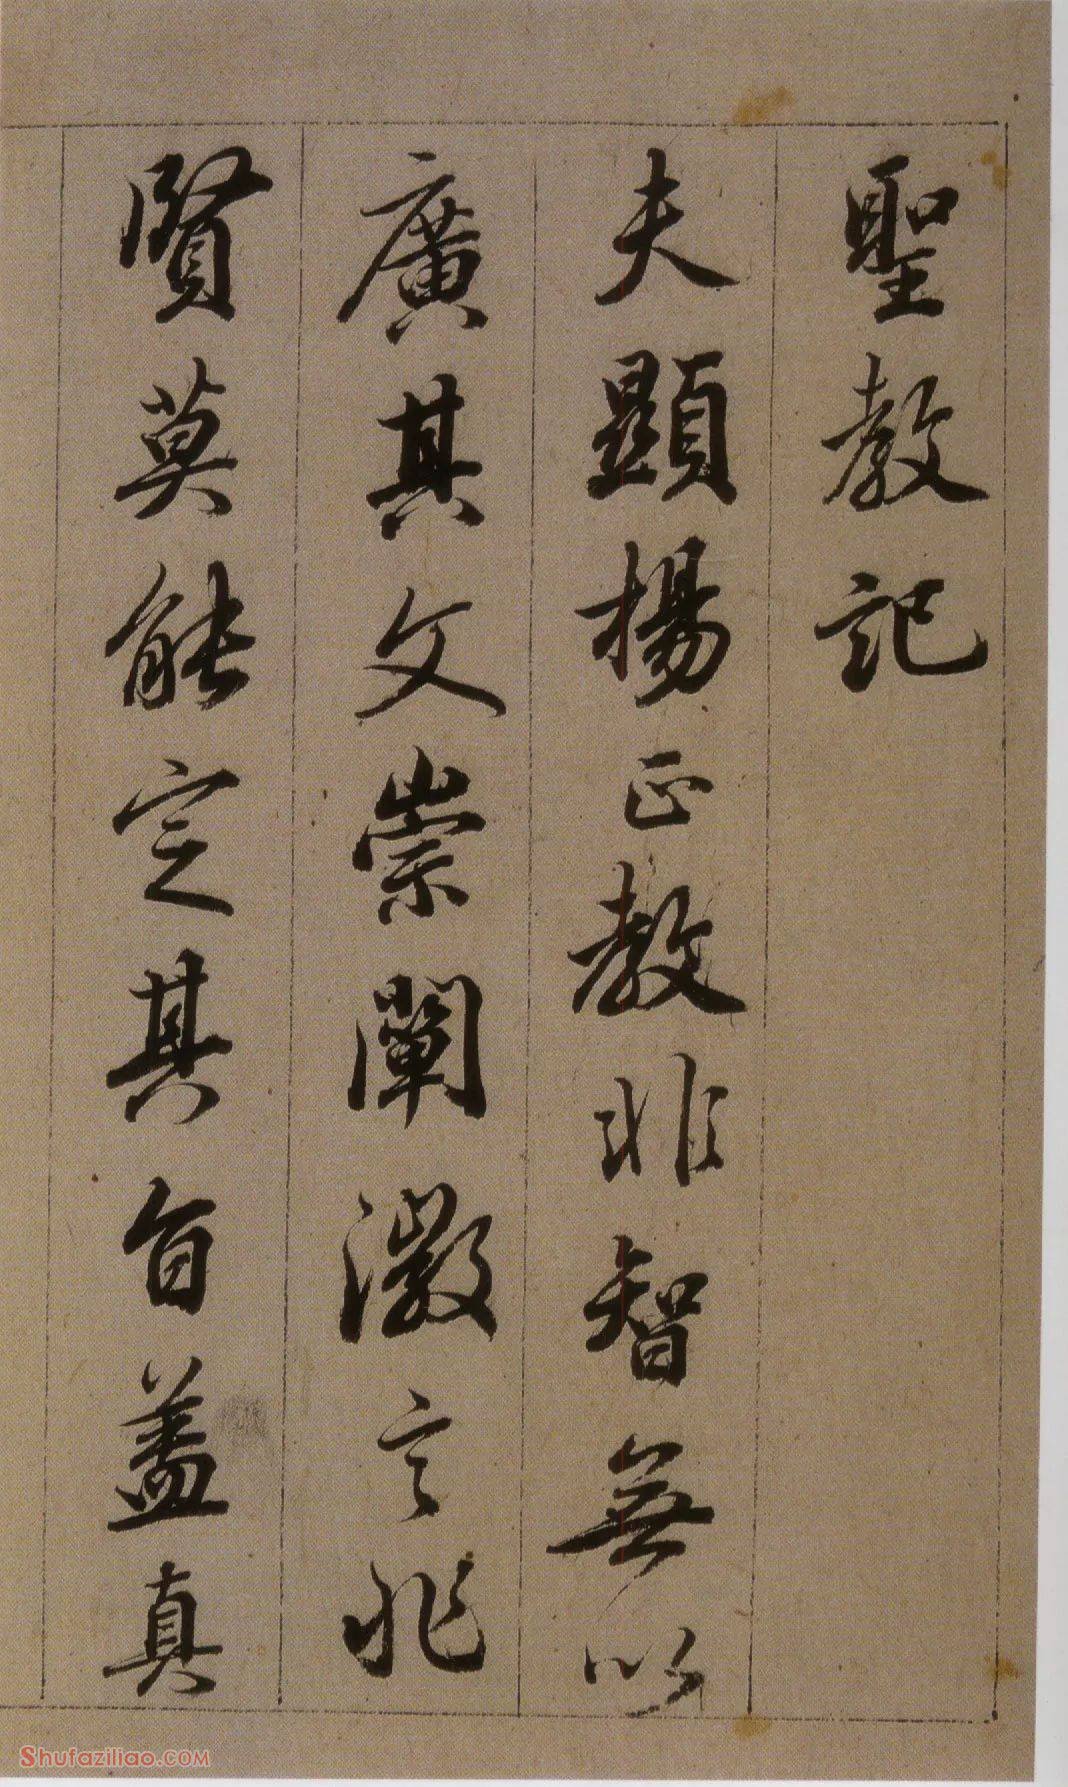 聖教記
夫顯揚正教非智無以
廣其文崇闡微言非
賢莫能定其旨盖真
Shufaziliao.COM